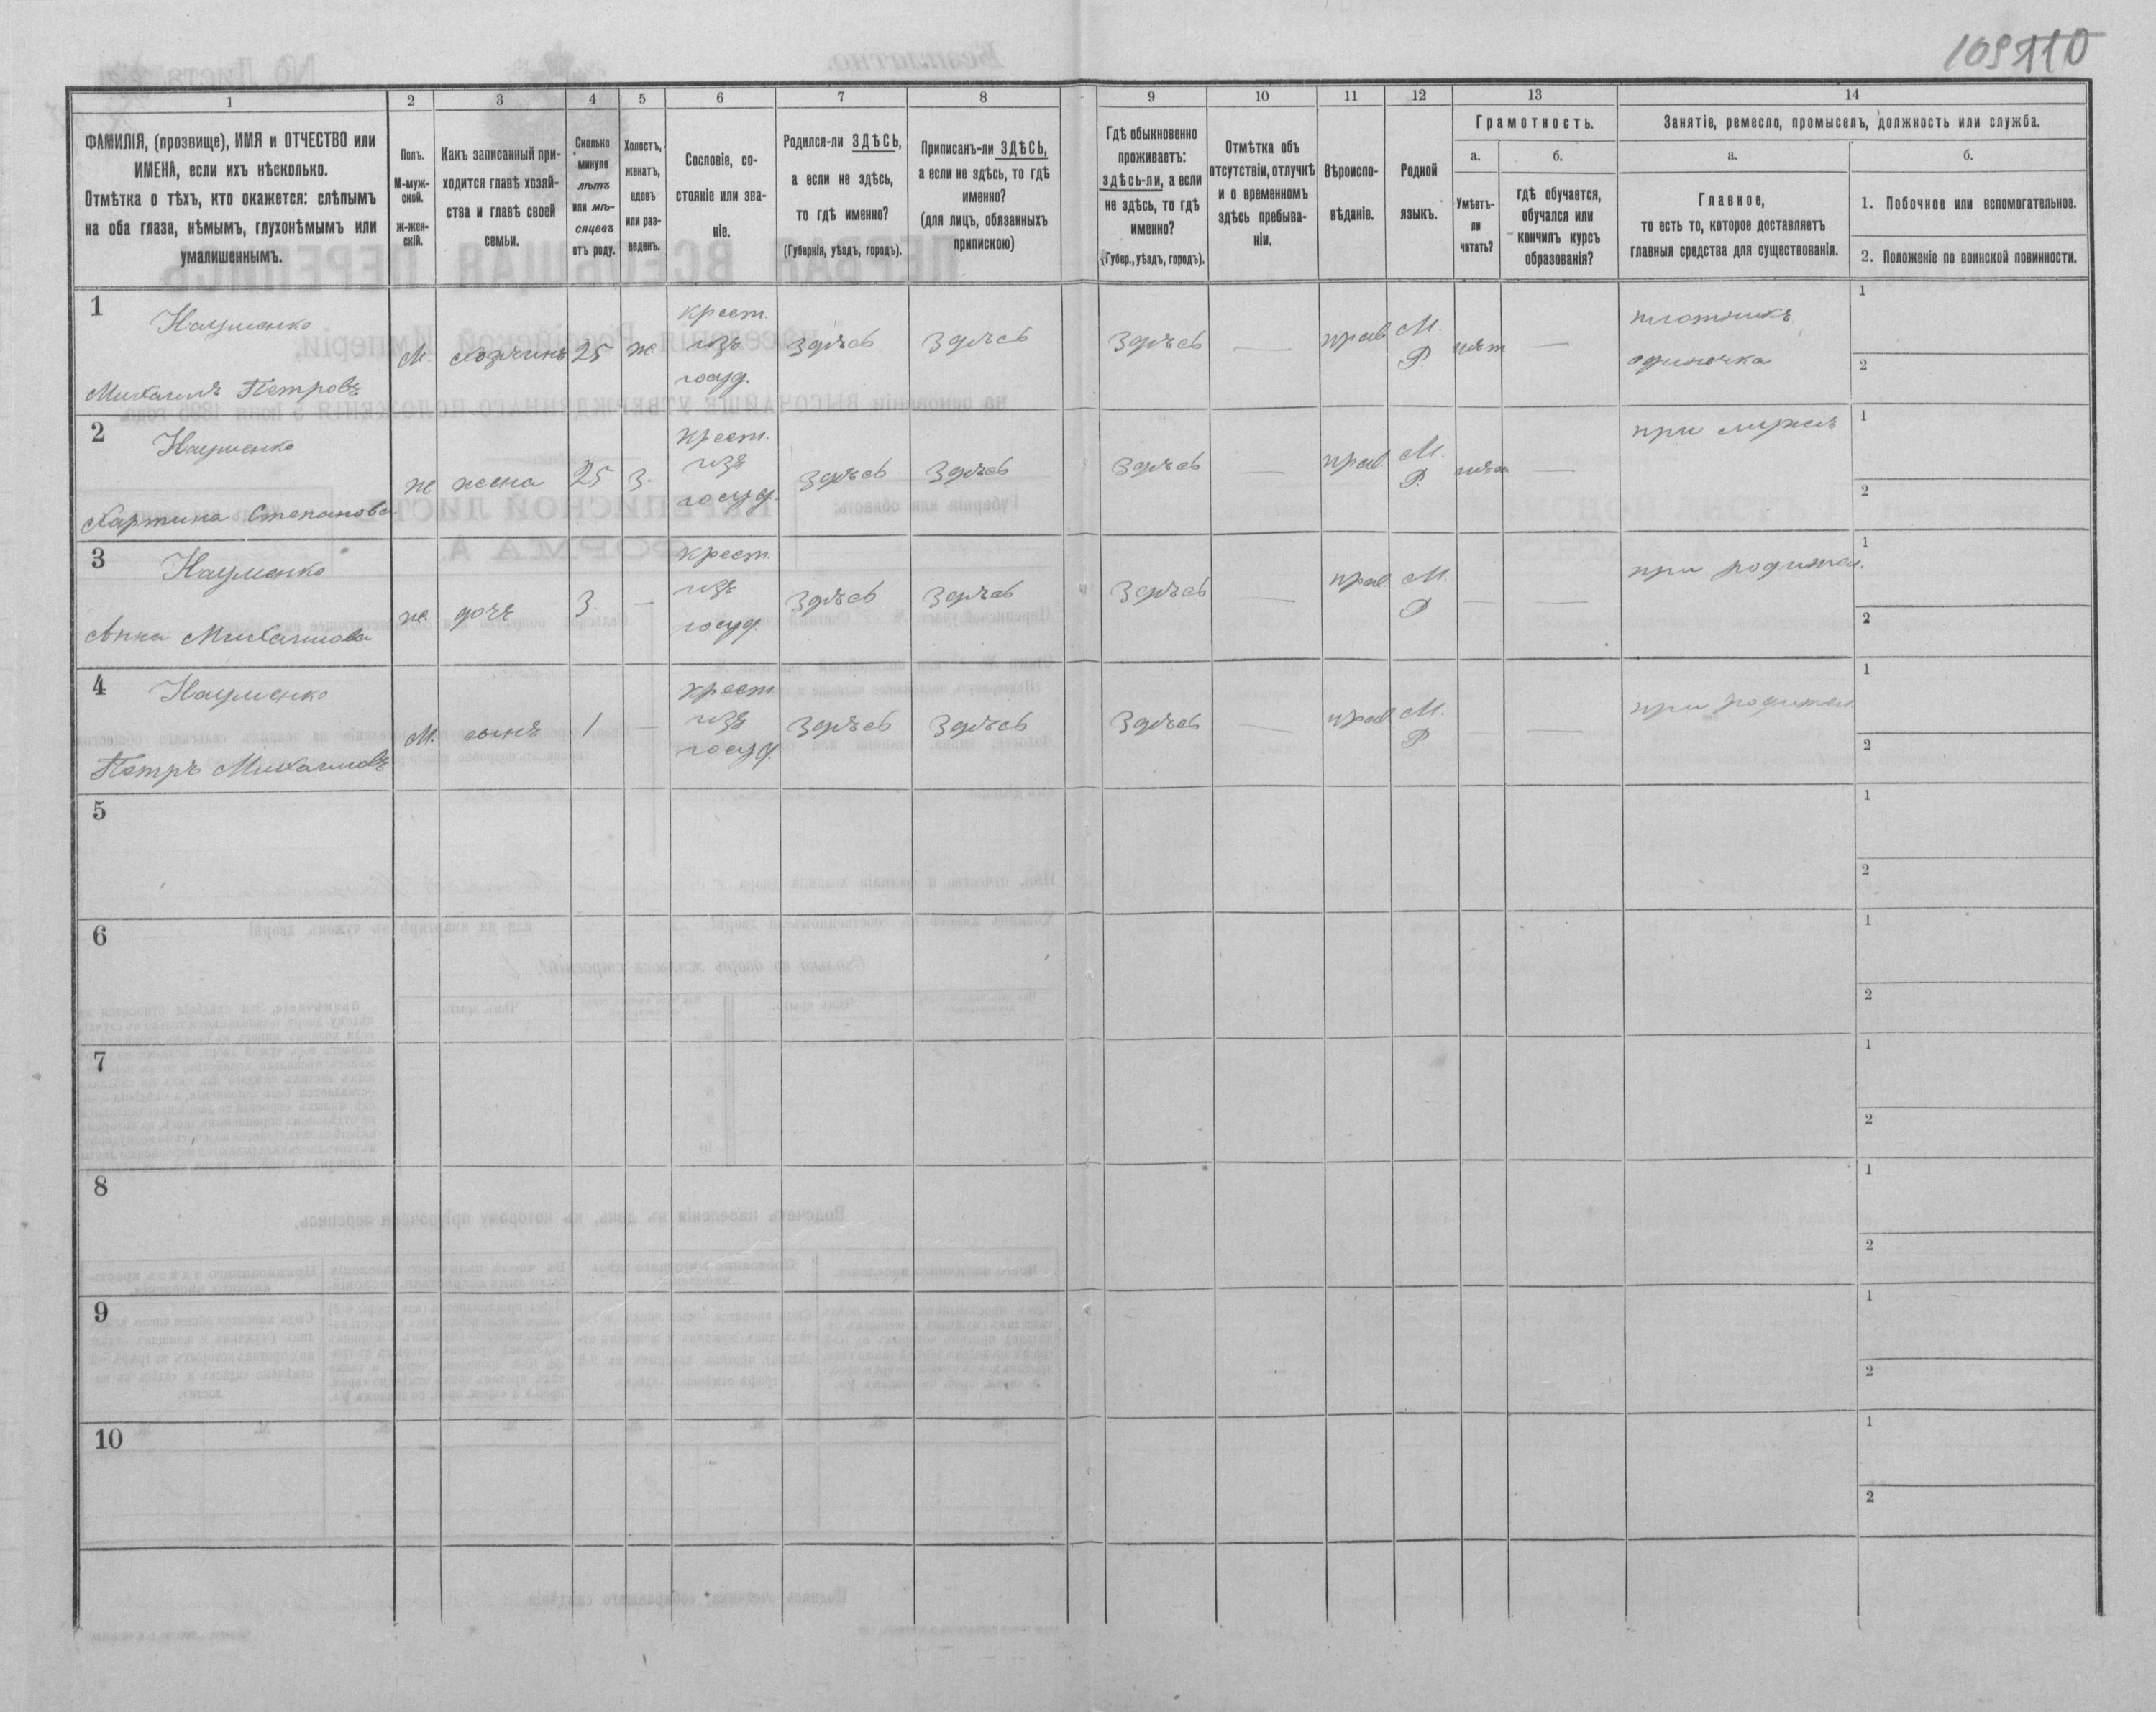 109 110
1 2 3 4 5 6 7 8 9 10 11 12 13 14
ФАМИЛІЯ, (прозвище), ИМЯ и ОТЧЕСТВО или
ИМЕНА, если ихъ нѣсколько.
Отмѣтка о тѣхъ, кто окажется: слѣпымъ
на оба глаза, нѣмымъ, глухонѣмымъ или
умалишеннымъ.
Полъ.
М-муж-
ской.
Ж-жен-
скій.
Какъ записанный при-
ходится главѣ хозяй-
ства и главѣ своей
семьи.
Сколько
минуло
лѣтъ
или мѣ-
сяцевъ
отъ роду.
Холостъ,
женатъ,
вдовъ
или раз-
веденъ.
Сословіе, со-
стояніе или зва-
ніе.
Родился-ли ЗДѢСЬ,
а если не здѣсь,
то гдѣ именно?
(Губернія, уѣздъ, городъ).
Приписанъ-ли ЗДѢСЬ,
а если не здѣсь, то гдѣ
именно?
(для лицъ, обязанныхъ
припискою)
Гдѣ обыкновенно
проживаетъ:
здѣсь-ли, а если
не здѣсь, то гдѣ
именно?
(Губер., уѣздъ, городъ).
Отмѣтка объ
отсутствіи, отлучкѣ
и о временномъ
здѣсь пребыва-
ніи.
Вѣроиспо-
вѣданіе.
Родной
языкъ.
Грамотность.
а.
Умѣетъ-
ли
читать?
б.
гдѣ обучается,
обучался или
кончилъ курсъ
образованія?
Занятіе, ремесло, промыселъ, должность или служба.
а.
Главное,
то есть то, которое доставляетъ
главныя средства для существованія.
б.
1. Побочное или вспомогательное.
2. Положеніе по воинской повинности.
1 Науменко
Михаилъ Петровъ
М. хозяинъ 25 ж.
крест.
изъ
госуд.
здѣсь здѣсь здѣсь — прав. М.
Р. нѣт —
плотникъ
одиночка
1
2
2 Науменко
Степанова
ж жена 25 з.
крест.
изъ
госуд.
здѣсь здѣсь здѣсь — прав. М.
Р. нѣт —
при мужѣ
1
2
3 Науменко
Анна Михаилова
ж. дочь 3 —
крест.
изъ
госуд.
здѣсь здѣсь здѣсь — прав М.
Р — —
при родител.
1
2
4 Науменко
Петръ Михаиловъ
М. сынъ 1 —
крест
изъ
госуд.
здѣсь здѣсь здѣсь — прав. М.
Р — —
при родител
1
2
5
1
2
6
1
2
7
1
2
8
1
2
9
1
2
10
1
2